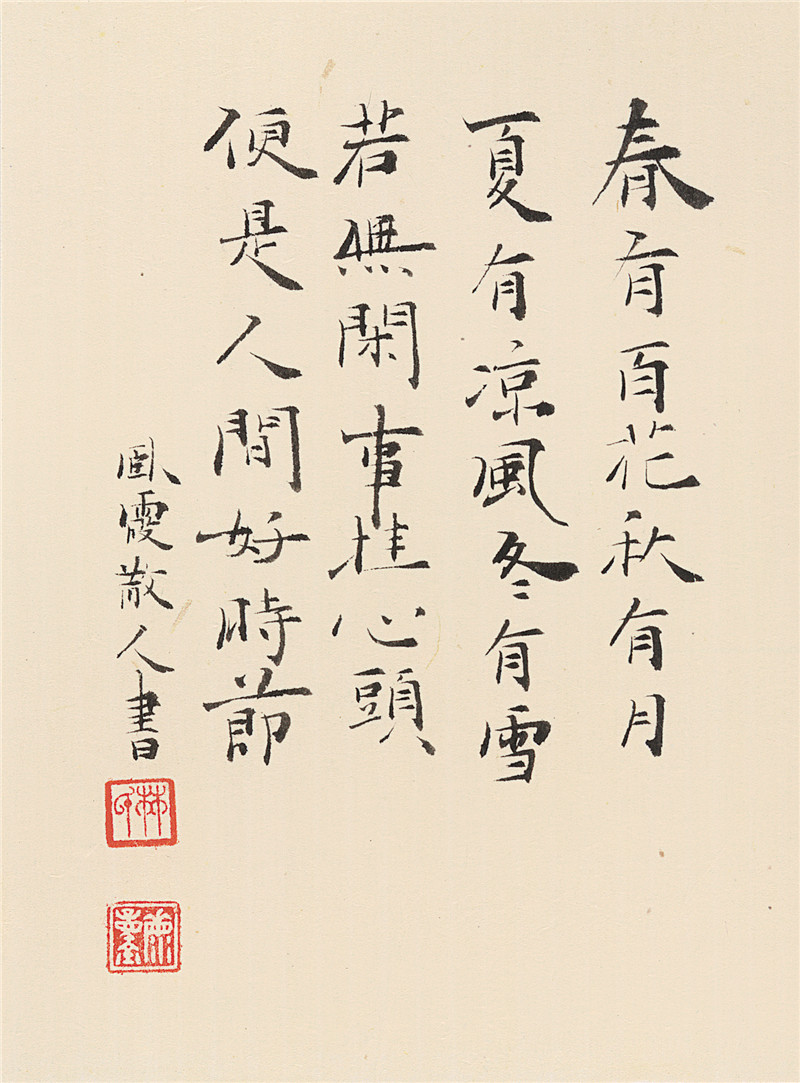 春有百花秋有月
夏有凉風冬有雪
若無閑事挂心頭
便是人間好時節
臥霞散人書